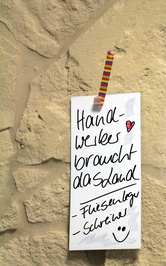 Hand-
werker
braucht
das Land
- Fliesenleger
- Schreiner